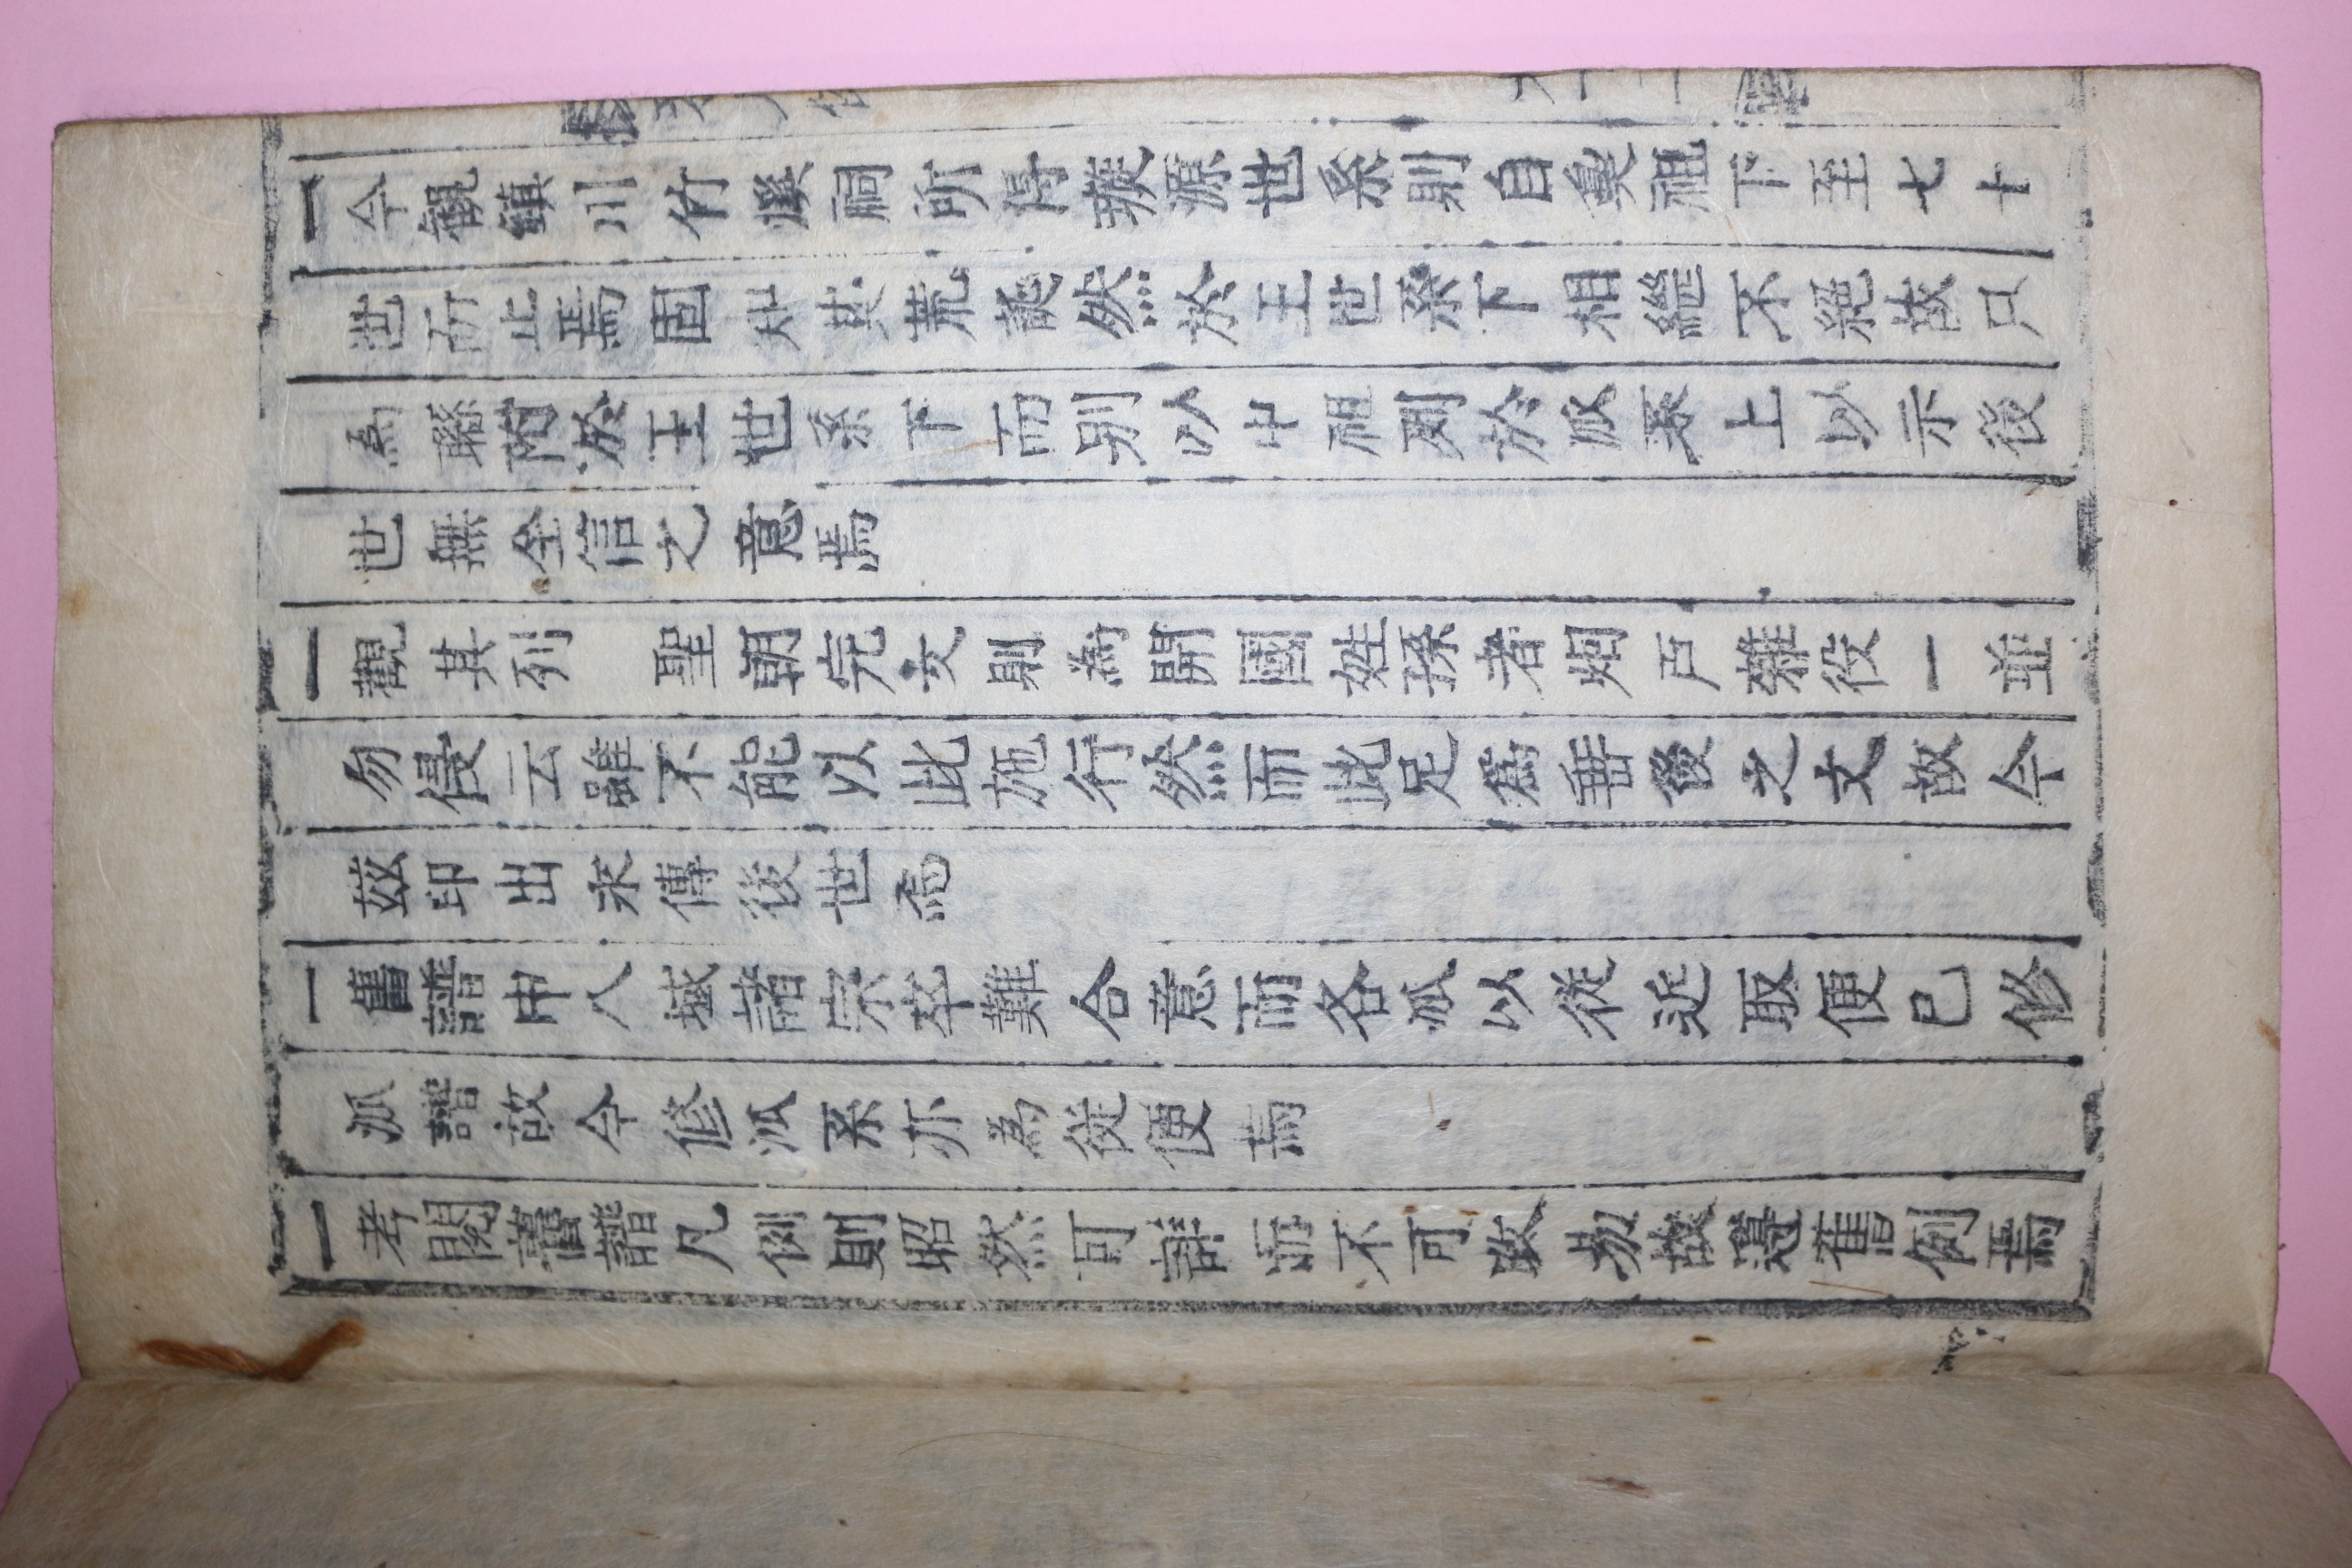 一今觀鎭川竹溪祠所得璇源世系則自鼻祖下至七十
世所止焉固知其荒誕然於王世系下相繼不絕故只
爲聯附於王世系下而別以中祖列於派系上以示後
世無全信之意焉
一觀其列　聖朝完文則為開國姓孫者烟戶雜役一並
勿侵云雖不能以此施行然而此足爲垂後之文故今
玆印出来傳後世焉
一舊譜中八域諸宗卒難合意而各派以從近取便已修
派譜故今修派系亦為從便焉
一考閱舊譜凡例則昭然可詳而不可改易故遵舊例焉